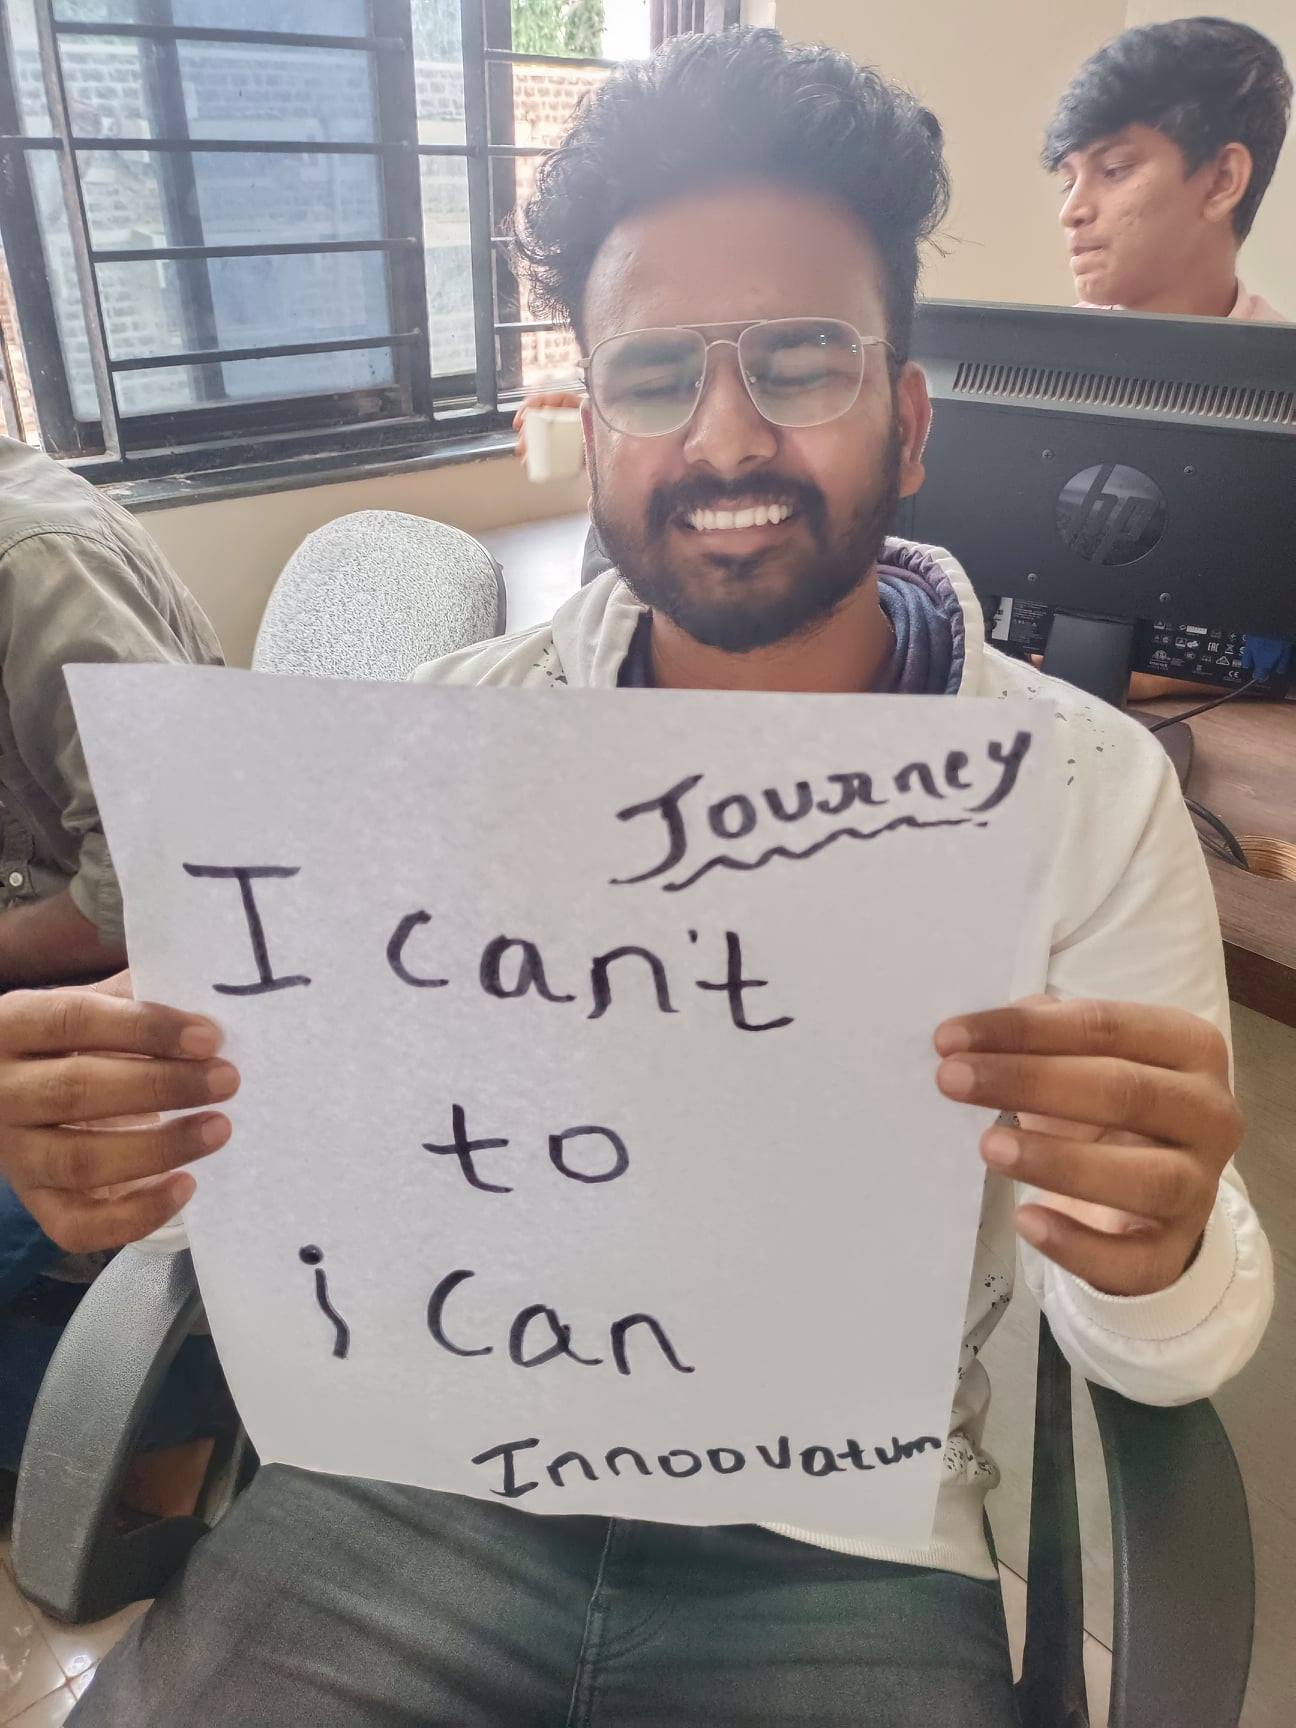 Journey
I can't
to
i can
Innoovatum
hp